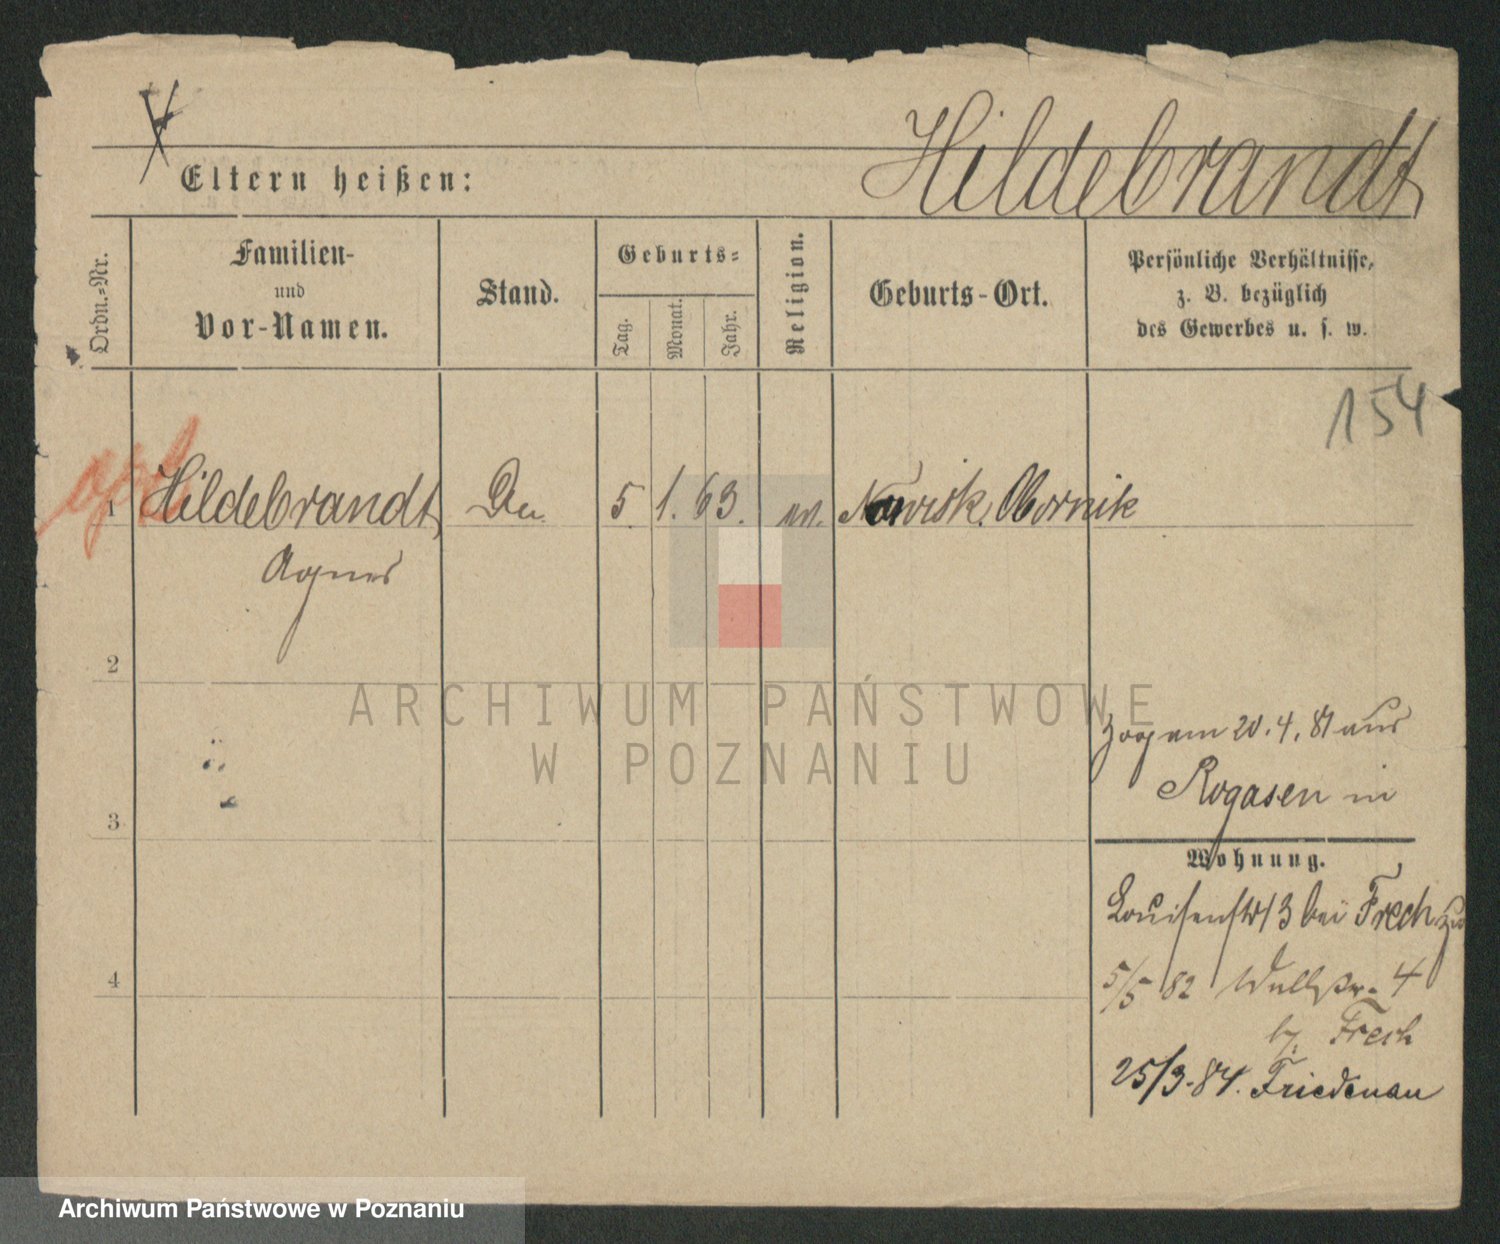 Hildebrandt
Eltern heißen:
Ordn.-Nr.
Familien-
und
Vor-Namen.
Stand.
Geburts-
Tag.
Monat.
Jahr.
Religion.
Geburts-Ort.
Persönliche Verhältnisse,
z. B. bezüglich
des Gewerbes u. s. w.
154
1 Hildebrandt 5. 1. 63. ev. Obornik
Agnes
2
ARCHIWUM PAŃSTWOWE
W POZNANIU
zog am 20.4.81 aus
Rogasen in
3
Wohnung.
Louisenstr 13 bei Frech
4
5/5 82 Wallstr. 4
b. Frech
25/3.84. Friedenau
Archiwum Państwowe w Poznaniu